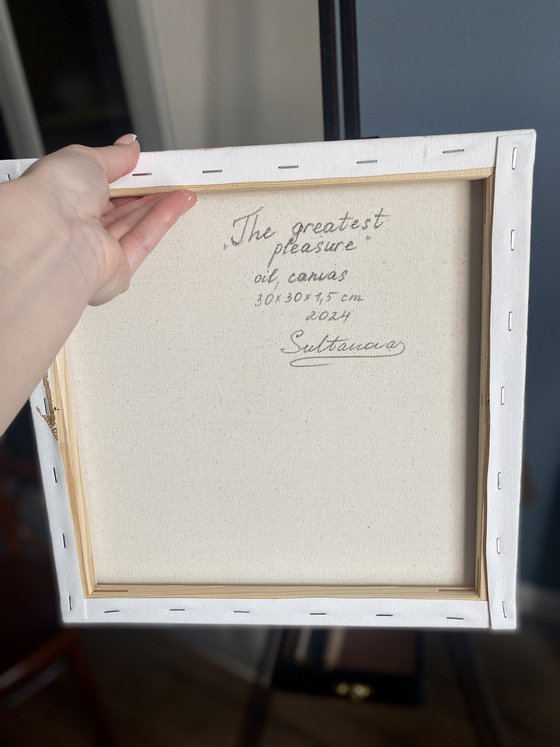 "The greatest
pleasure"
oil, canvas
30×30×1,5 cm
2024
Sultanova